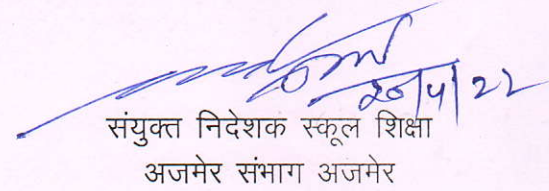 20/4/22
संयुक्त निदेशक स्कूल शिक्षा
अजमेर संभाग अजमेर